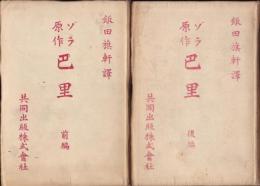 飯田旗軒譯
ゾラ原作
巴里
前編
共同出版株式會社
飯田旗軒譯
ゾラ原作
巴里
後編
共同出版株式會社